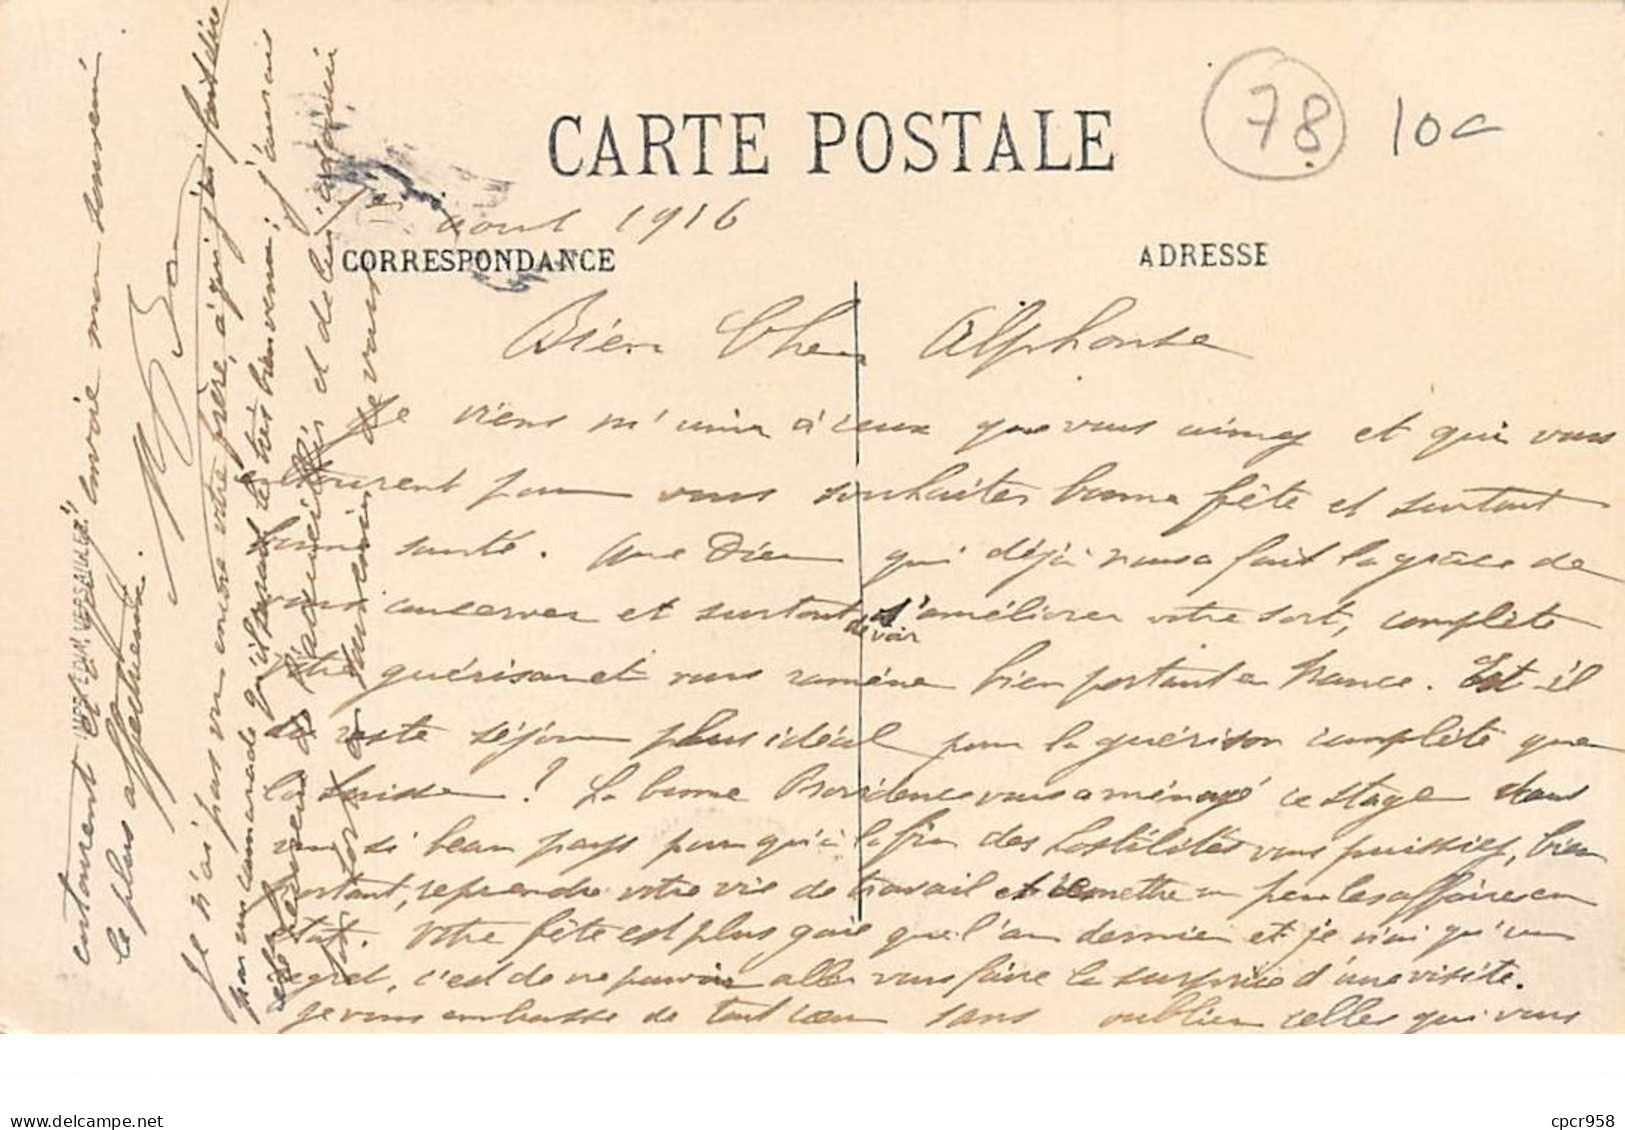 CARTE POSTALE
78
10c
1er août 1916
CORRESPONDANCE
ADRESSE
Bien Cher Alphonse
Je viens m'unir à ceux que vous aimez et qui vous
entourent pour vous souhaiter bonne fête et surtout
bonne santé. Que Dieu qui déjà vous a fait la grâce de
vous conserver et surtout d'améliorer votre sort, complète
devoir
votre guérison et vous ramène bien portant en France. Est-il
du reste séjour plus idéal pour la guérison complète que
la Suisse ? La bonne Providence vous a ménagé ce stage dans
un si beau pays pour qu'à la fin des hostilités vous puissiez, bien
portant, reprendre votre vie de travail et remettre un peu les affaires en
état. Votre fête est plus gaie que l'an dernier et je n'ai qu'un
regret, c'est de ne pouvoir aller vous faire la surprise d'une visite.
Je vous embrasse de tout cœur sans oublier celles qui vous
entourent et envoie mon souvenir
le plus affectueux.
Je n'ai pas vu encore votre frère, à qui j'ai fait dire
par un camarade qu'il serait le très bien venu ; j'aurais
été heureux de l'accueillir et de lui
de vous
IMPR. EDIA. VERSAILLES
cpcr958